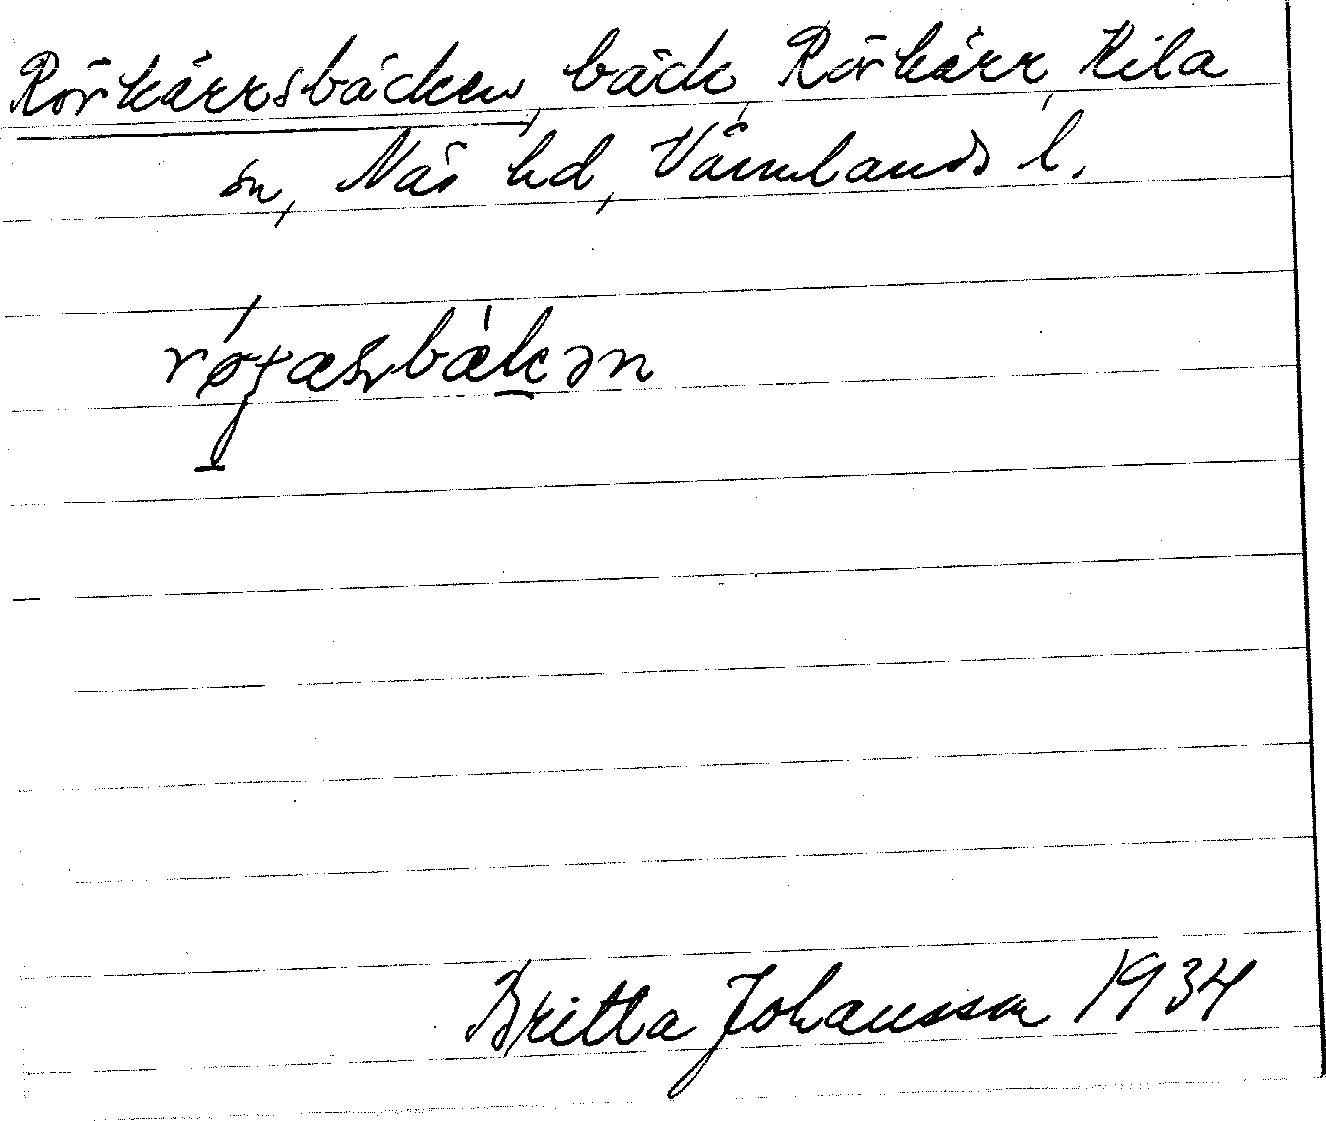 Rörkärrsbäcken, bäck, Rörkärr, Kila
sn, Näs hd, Värmlands l.
Britta Johansson 1934